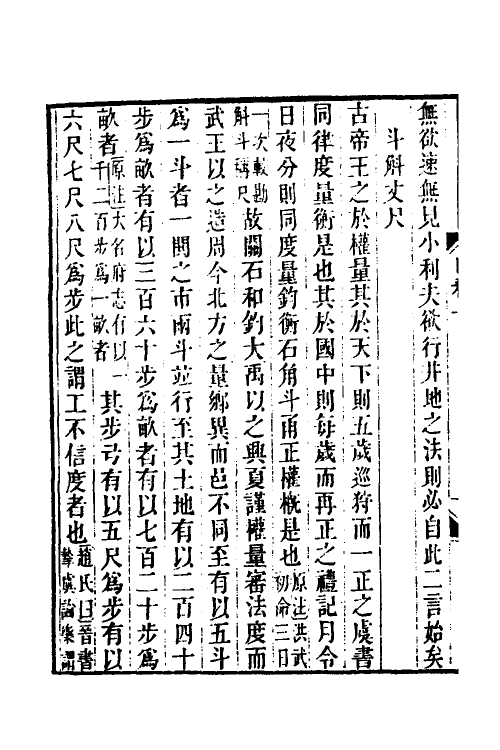 無欲速無見小利夫欲行井地之法則必自此二言始矣
斗斛丈尺
古帝王之於權量其於天下則五歲巡狩而一正之虞書
同律度量衡是也其於國中則每歲而再正之禮記月令
日夜分則同度量鈞衡石角斗甬正權概是也原注洪武初命三日
一次較勘斛斗稱尺故關石和鈞大禹以之興夏謹權量審法度而
武王以之造周今北方之量鄉異而邑不同至有以五斗
爲一斗者一鬨之市兩斗竝行至其土地有以二百四十
步爲畝者有以三百六十步爲畝者有以七百二十步爲
畝者原注大名府志有以一千二百步爲一畝者其步弓有以五尺爲步有以
六尺七尺八尺爲步此之謂工不信度者也趙氏曰晉書摯虞論樂謂